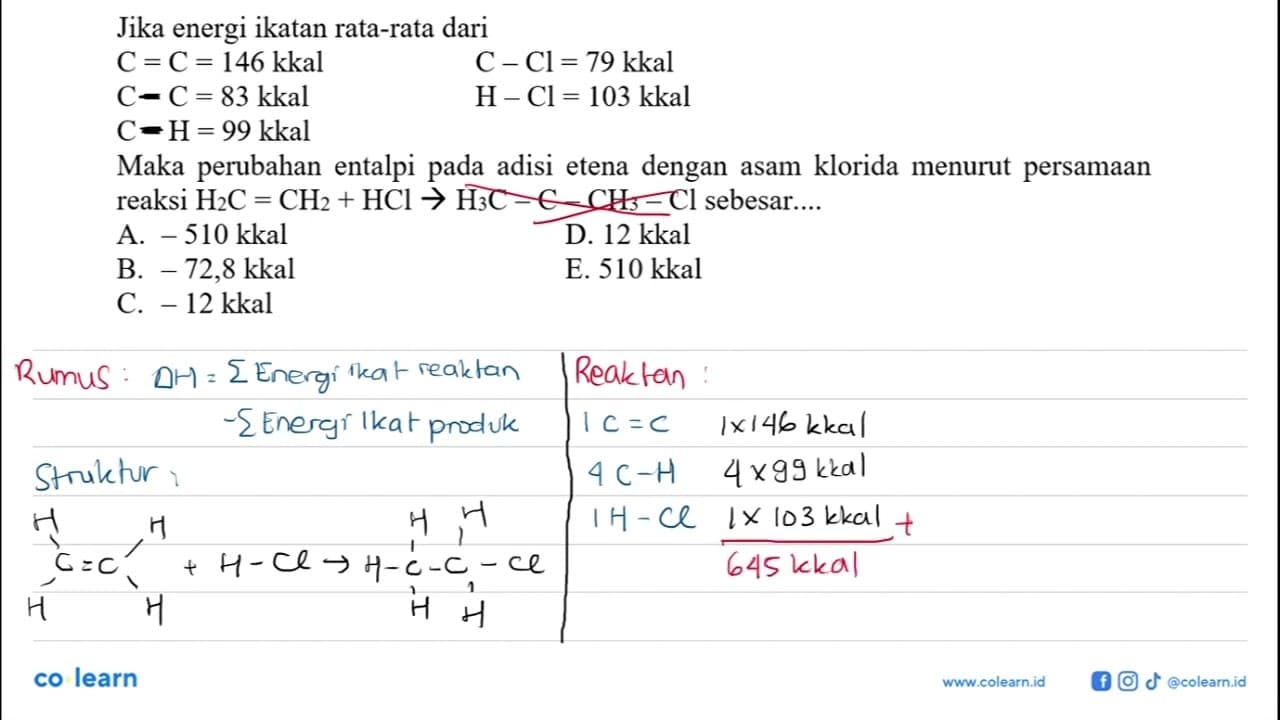 Jika energi ikatan rata-rata dari
C = C = 146 kkal C – Cl = 79 kkal
C – C = 83 kkal H – Cl = 103 kkal
C – H = 99 kkal
Maka perubahan entalpi pada adisi etena dengan asam klorida menurut persamaan
reaksi H₂C = CH₂ + HCl → H₃C – C – CH₃ – Cl sebesar....
A. – 510 kkal D. 12 kkal
B. – 72,8 kkal E. 510 kkal
C. – 12 kkal
Rumus : ΔH = Σ Energi ikat reaktan
-Σ Energi Ikat produk
Struktur :
H H H H
C=C + H-Cl → H-C-C-Cl
H H H H
Reaktan :
1 C=C 1x146 kkal
4 C-H 4x99 kkal
1 H-Cl 1x 103 kkal +
645 kkal
co learn www.colearn.id @colearn.id